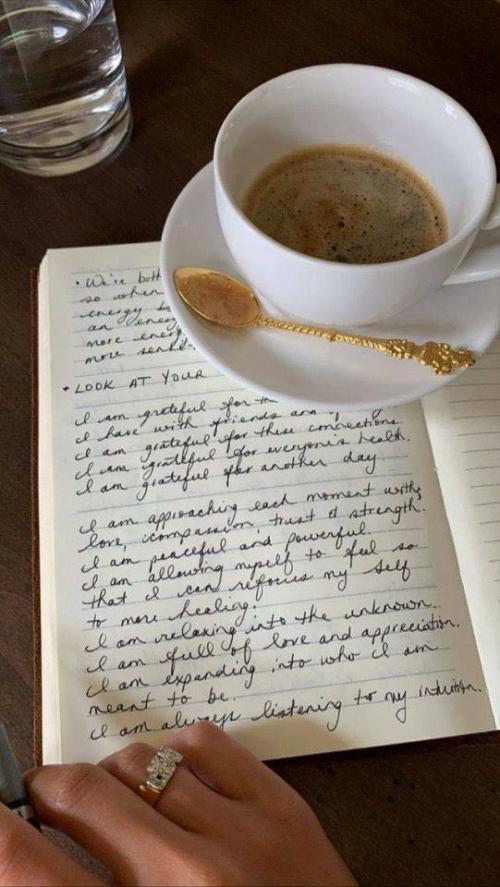 • We're both
so when
energy
an energy
more energy
more
• LOOK AT YOUR
I am grateful for the
I have with friends and
I am grateful for these connections
I am grateful for everyone's health.
I am grateful for another day
I am approaching each moment with
love, compassion, trust & strength.
I am peaceful and powerful.
I am allowing myself to feel so
that I can refocus my self
to more healing.
I am relaxing into the unknown.
I am full of love and appreciation.
I am expanding into who I am
meant to be.
I am always listening to my intuition.